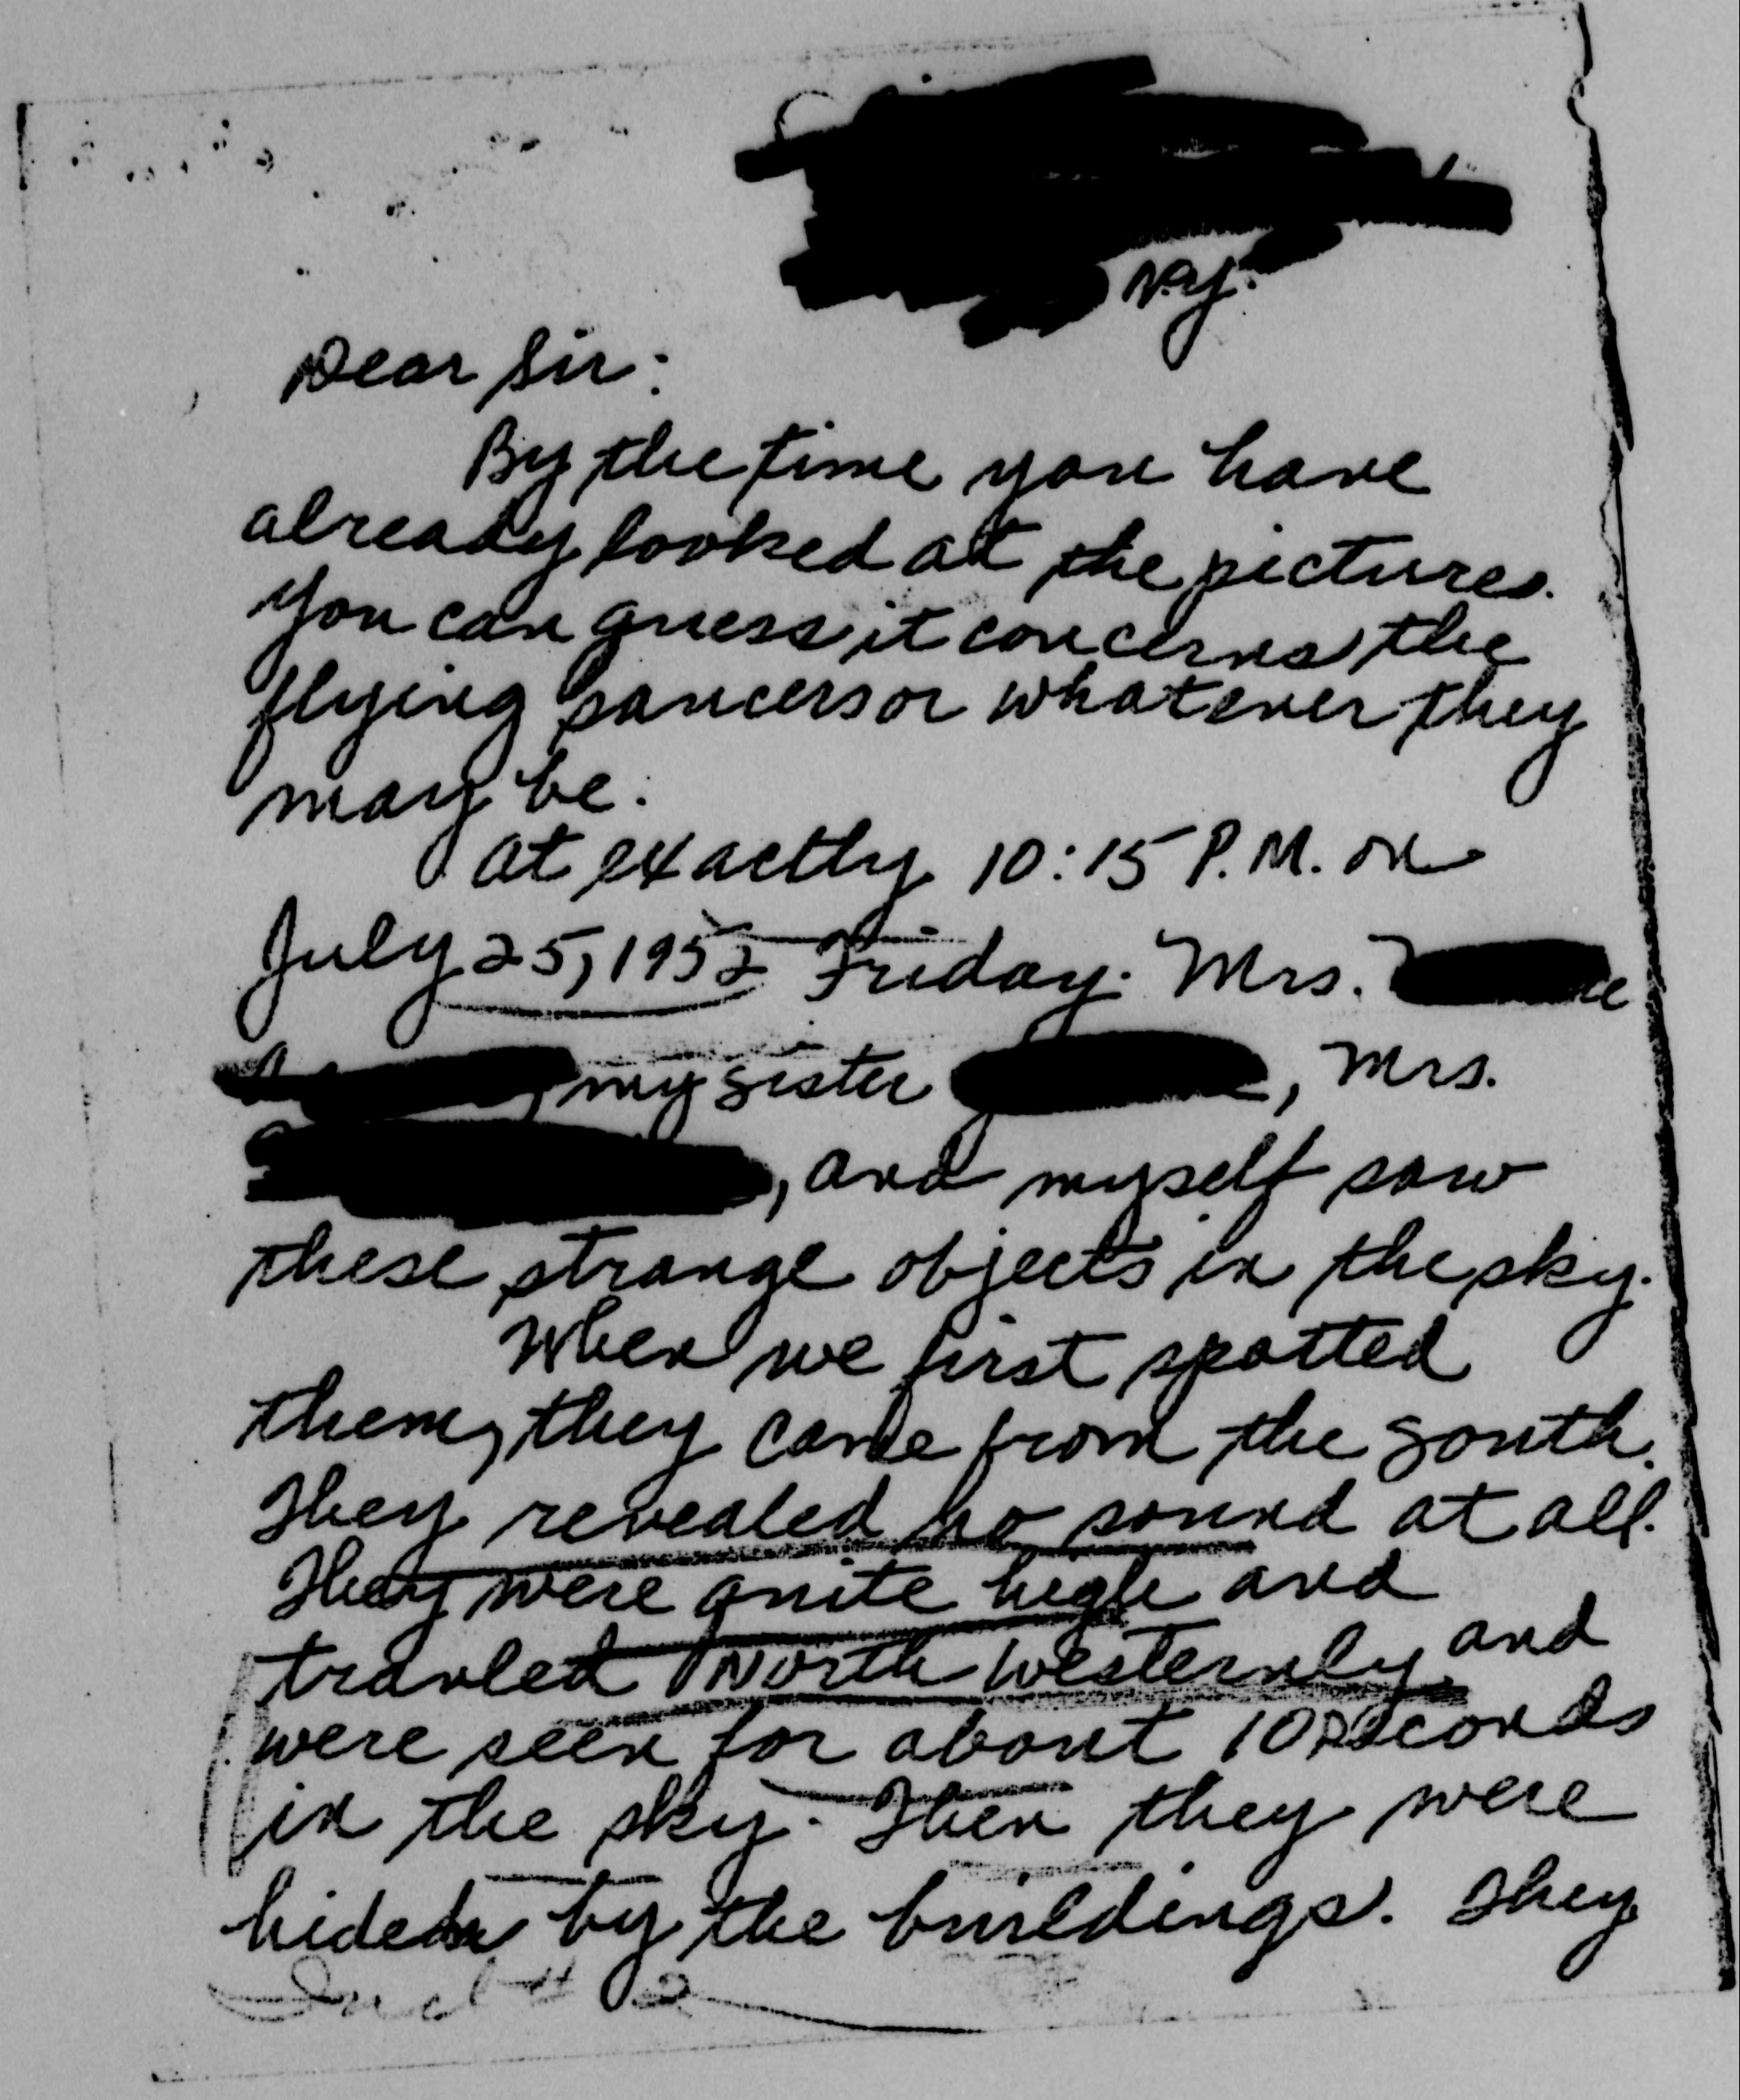 N.Y.
Dear Sir:
By the time you have
already looked at the pictures.
You can guess it concerns the
flying saucers or whatever they
may be.
At exactly 10:15 P.M. on
July 25, 1952 Friday. Mrs.
my sister , Mrs.
, and myself saw
these strange objects in the sky.
When we first spotted
them, they came from the south.
They revealed no sound at all.
They were quite high and
travled North Westernly and
were seen for about 10 seconds
in the sky. Then they were
hideden by the buildings. They
Incl # 2